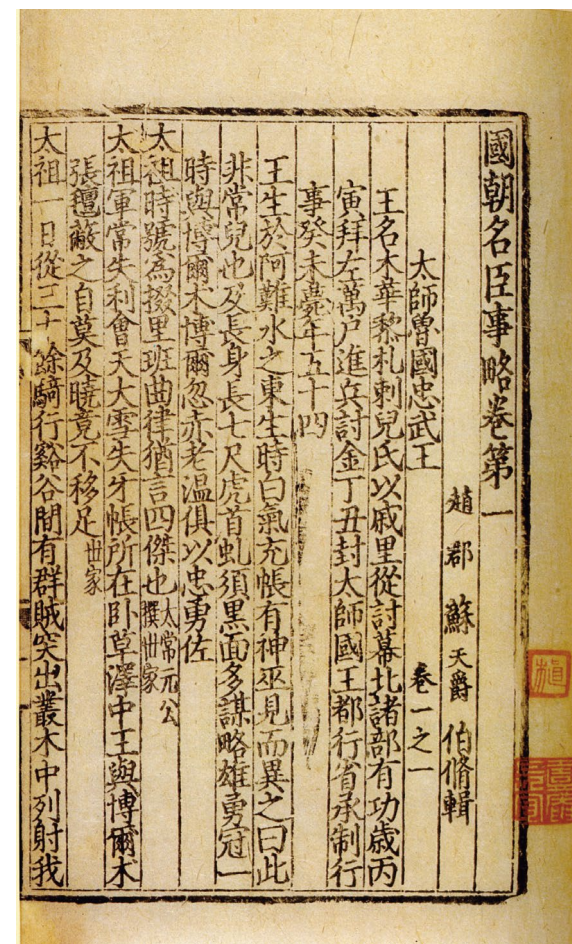 國朝名臣事略卷第一
趙郡蘇天爵伯脩輯
太師魯國忠武王 卷一之一
王名木華黎札剌兒氏以戚里從討幕北諸部有功歲丙
寅拜左萬户進兵討金丁丑封太師國王都行省承制行
事癸未薨年五十四
王生於阿難水之東生時白氣充帳有神巫見而異之曰此
非常兒也及長身長七尺虎首虬須黑面多謀略雄勇冠一
時與博爾木博爾忽赤老温俱以忠勇佐
太祖時號為掇里班曲律猶言四傑也太常元公撰世家
太祖軍常失利會天大雪失牙帳所在卧草澤中王與博爾木
張氊蔽之自莫及曉竟不移足世家
太祖一日從三十餘騎行谿谷間有群賊突出叢木中列射我